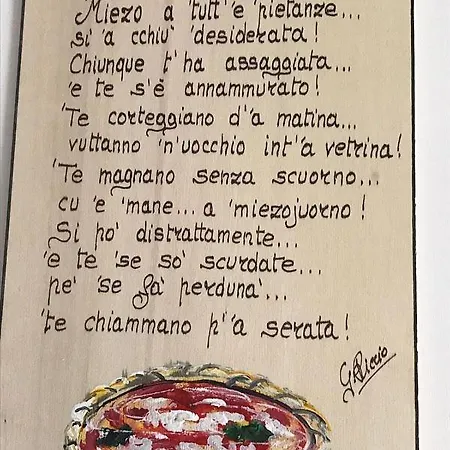 Miezo a 'tutt''e 'pietanze...
si 'a cchiu' 'desiderata!
Chiunque t'ha assaggiata...
'e te s'è annammurato!
'Te corteggiano d''a matina...
vuttanno 'n'uocchio int''a vetrina!
'Te magnano senza scuorno...
cu 'e 'mane... a 'miezojuorno!
Si po' distrattamente...
'e te 'se so' scurdate...
pe' 'se fa' perduna'...
'te chiammano p''a serata!